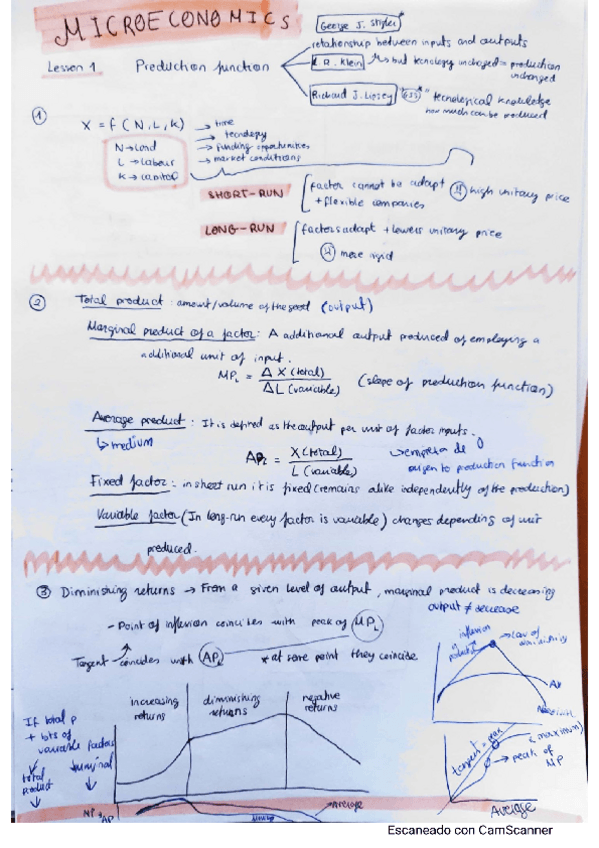 MICROECONOMICS
George J. Stigler
relationship between inputs and outputs
Lesson 1 Production function
L.R. Klein but tecnology unchaged = production unchanged
Richard J. Lipsey "tecnological knowledge
how much can be produced
① X = f (N, L, K)
→ time
→ tecnology
→ funding opportunities
→ market conditions
N → land
L → labour
K → capital
SHORT-RUN
factor cannot be adapt
+ flexible companies
high unitary price
LONG-RUN
factors adapt + lowers unitary price
more rigid
② Total product : amount/volume of the good (output)
Marginal product of a factor : A additional output produced of employing a
additional unit of input.
MPL = Δ X (total) / Δ L (variable) (slope of production function)
Average product : It is defined as the output per unit of factor inputs.
↳ medium
APL = X (total) / L (variable)
↳ empieza de 0
origen to production function
Fixed factor : in short run it is fixed (remains alike independently of the production)
Variable factor (In long-run every factor is variable) changes depending of unit
produced.
③ Diminishing returns → From a given level of output, marginal product is decreasing
output ≠ decrease
- Point of inflexion coincides with peak of MPL
Tangent coincides with APL * at some point they coincide
inflexion
Law of
increasing returns
diminishing returns
negative returns
If total p
+ lots of
variable factors
total product
marginal
MP AP
Average
tangent = peak
(maximum)
→ peak of MP
Average
Escaneado con CamScanner